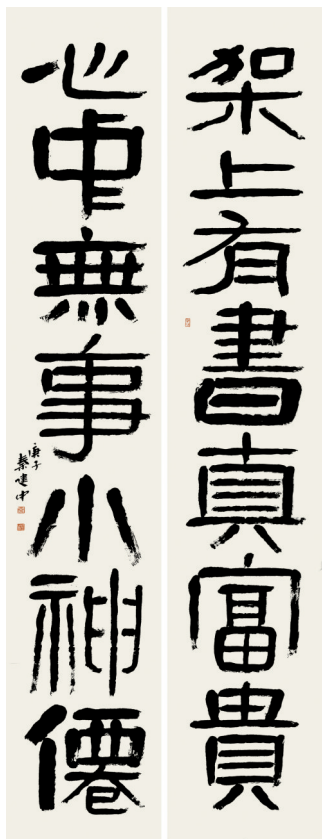 架上有書真富貴
心中無事小神僊
庚子
蔡建中